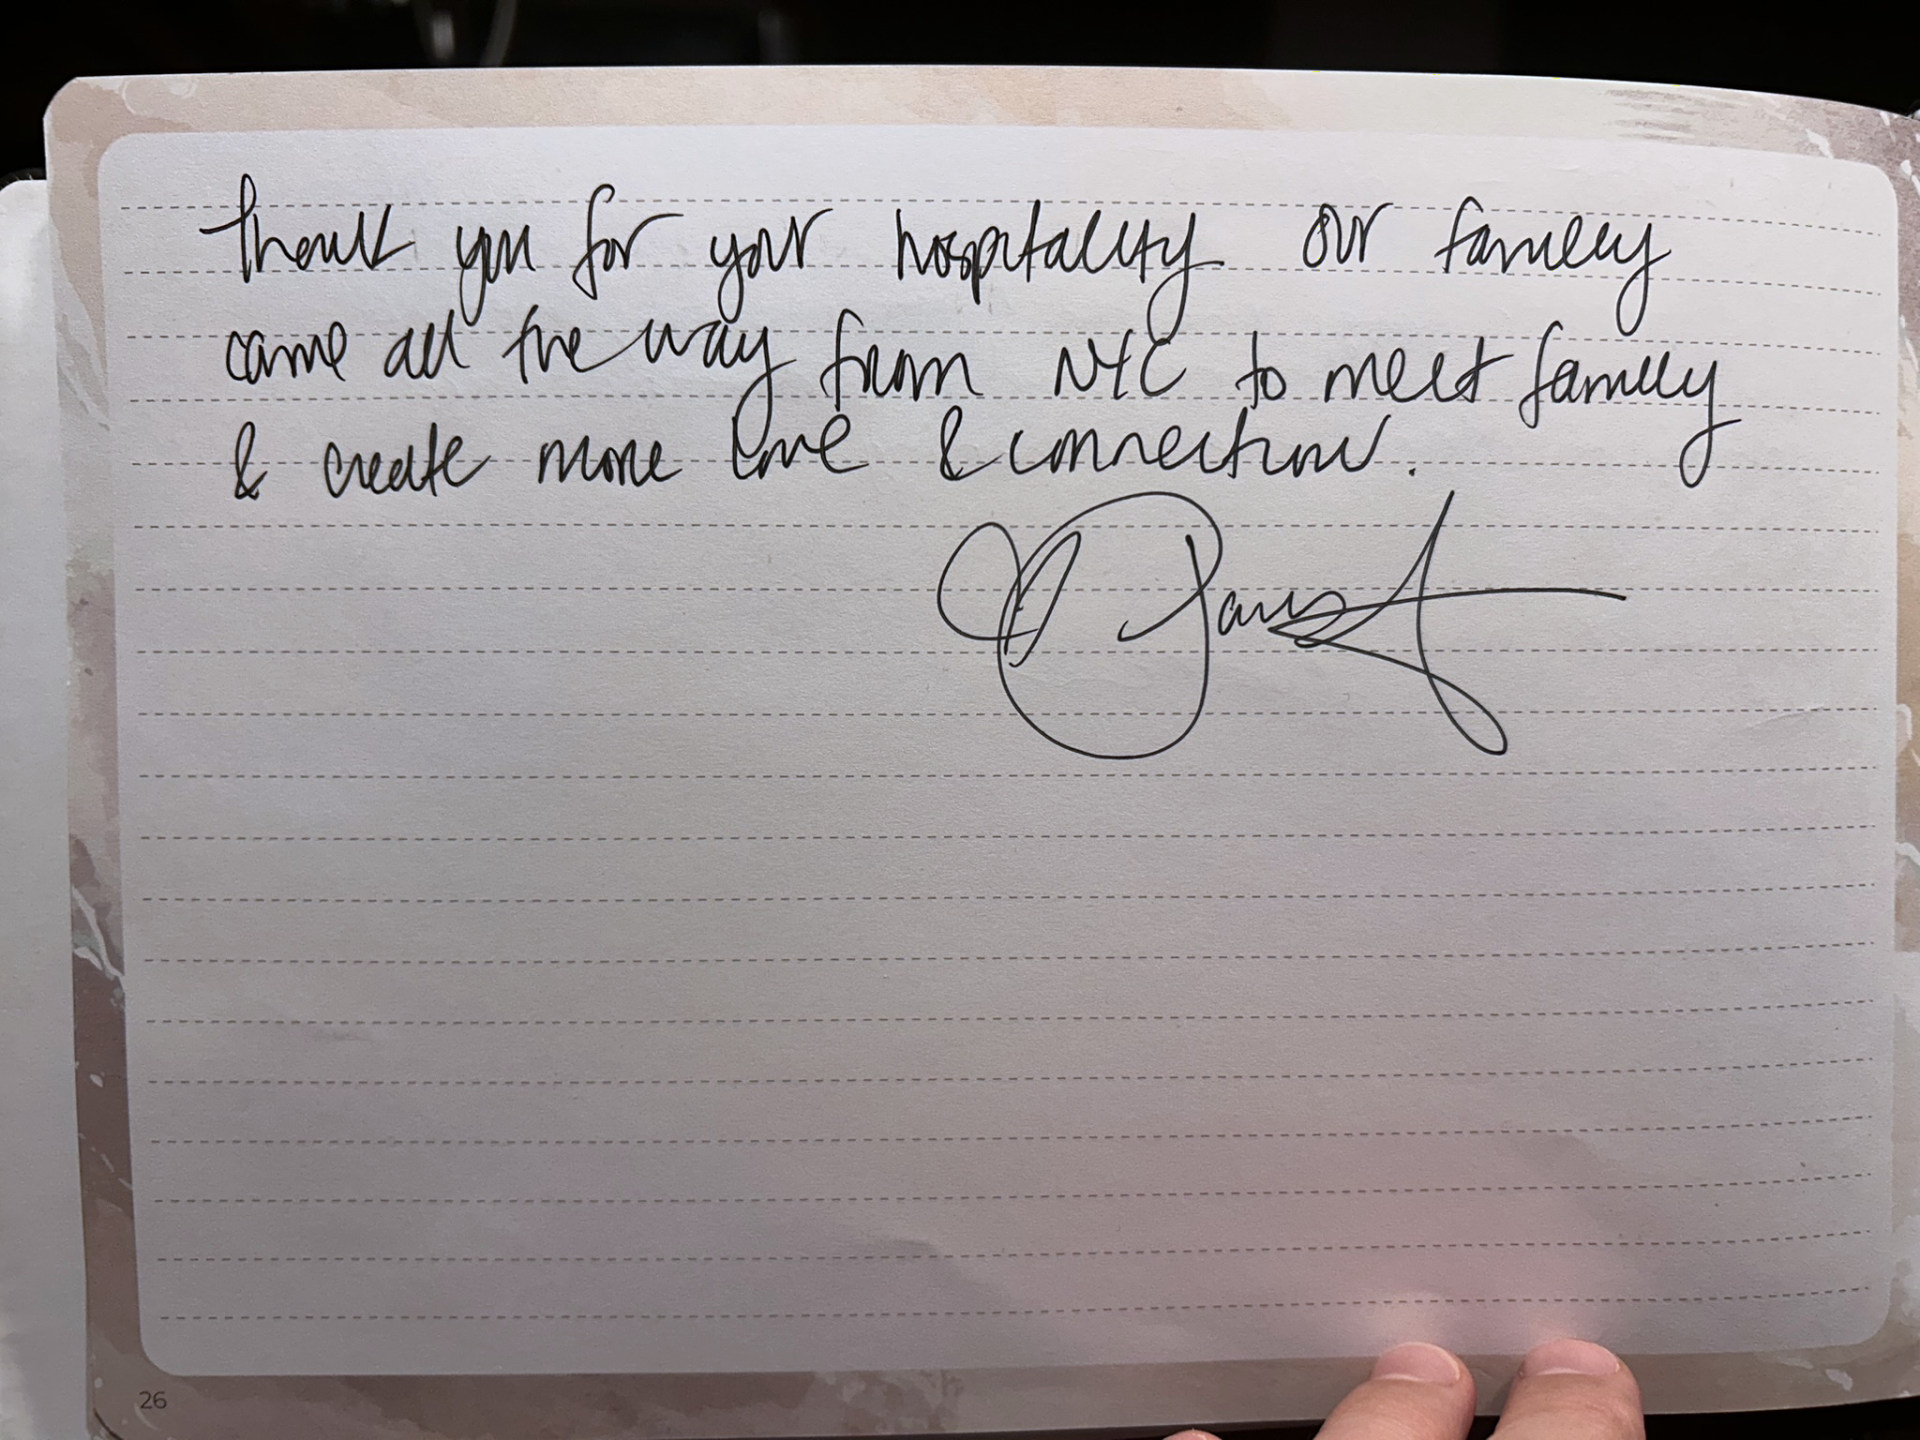 Thank you for your hospitality Our family
came all the way from NYC to meet family
& create more love & connection.
26